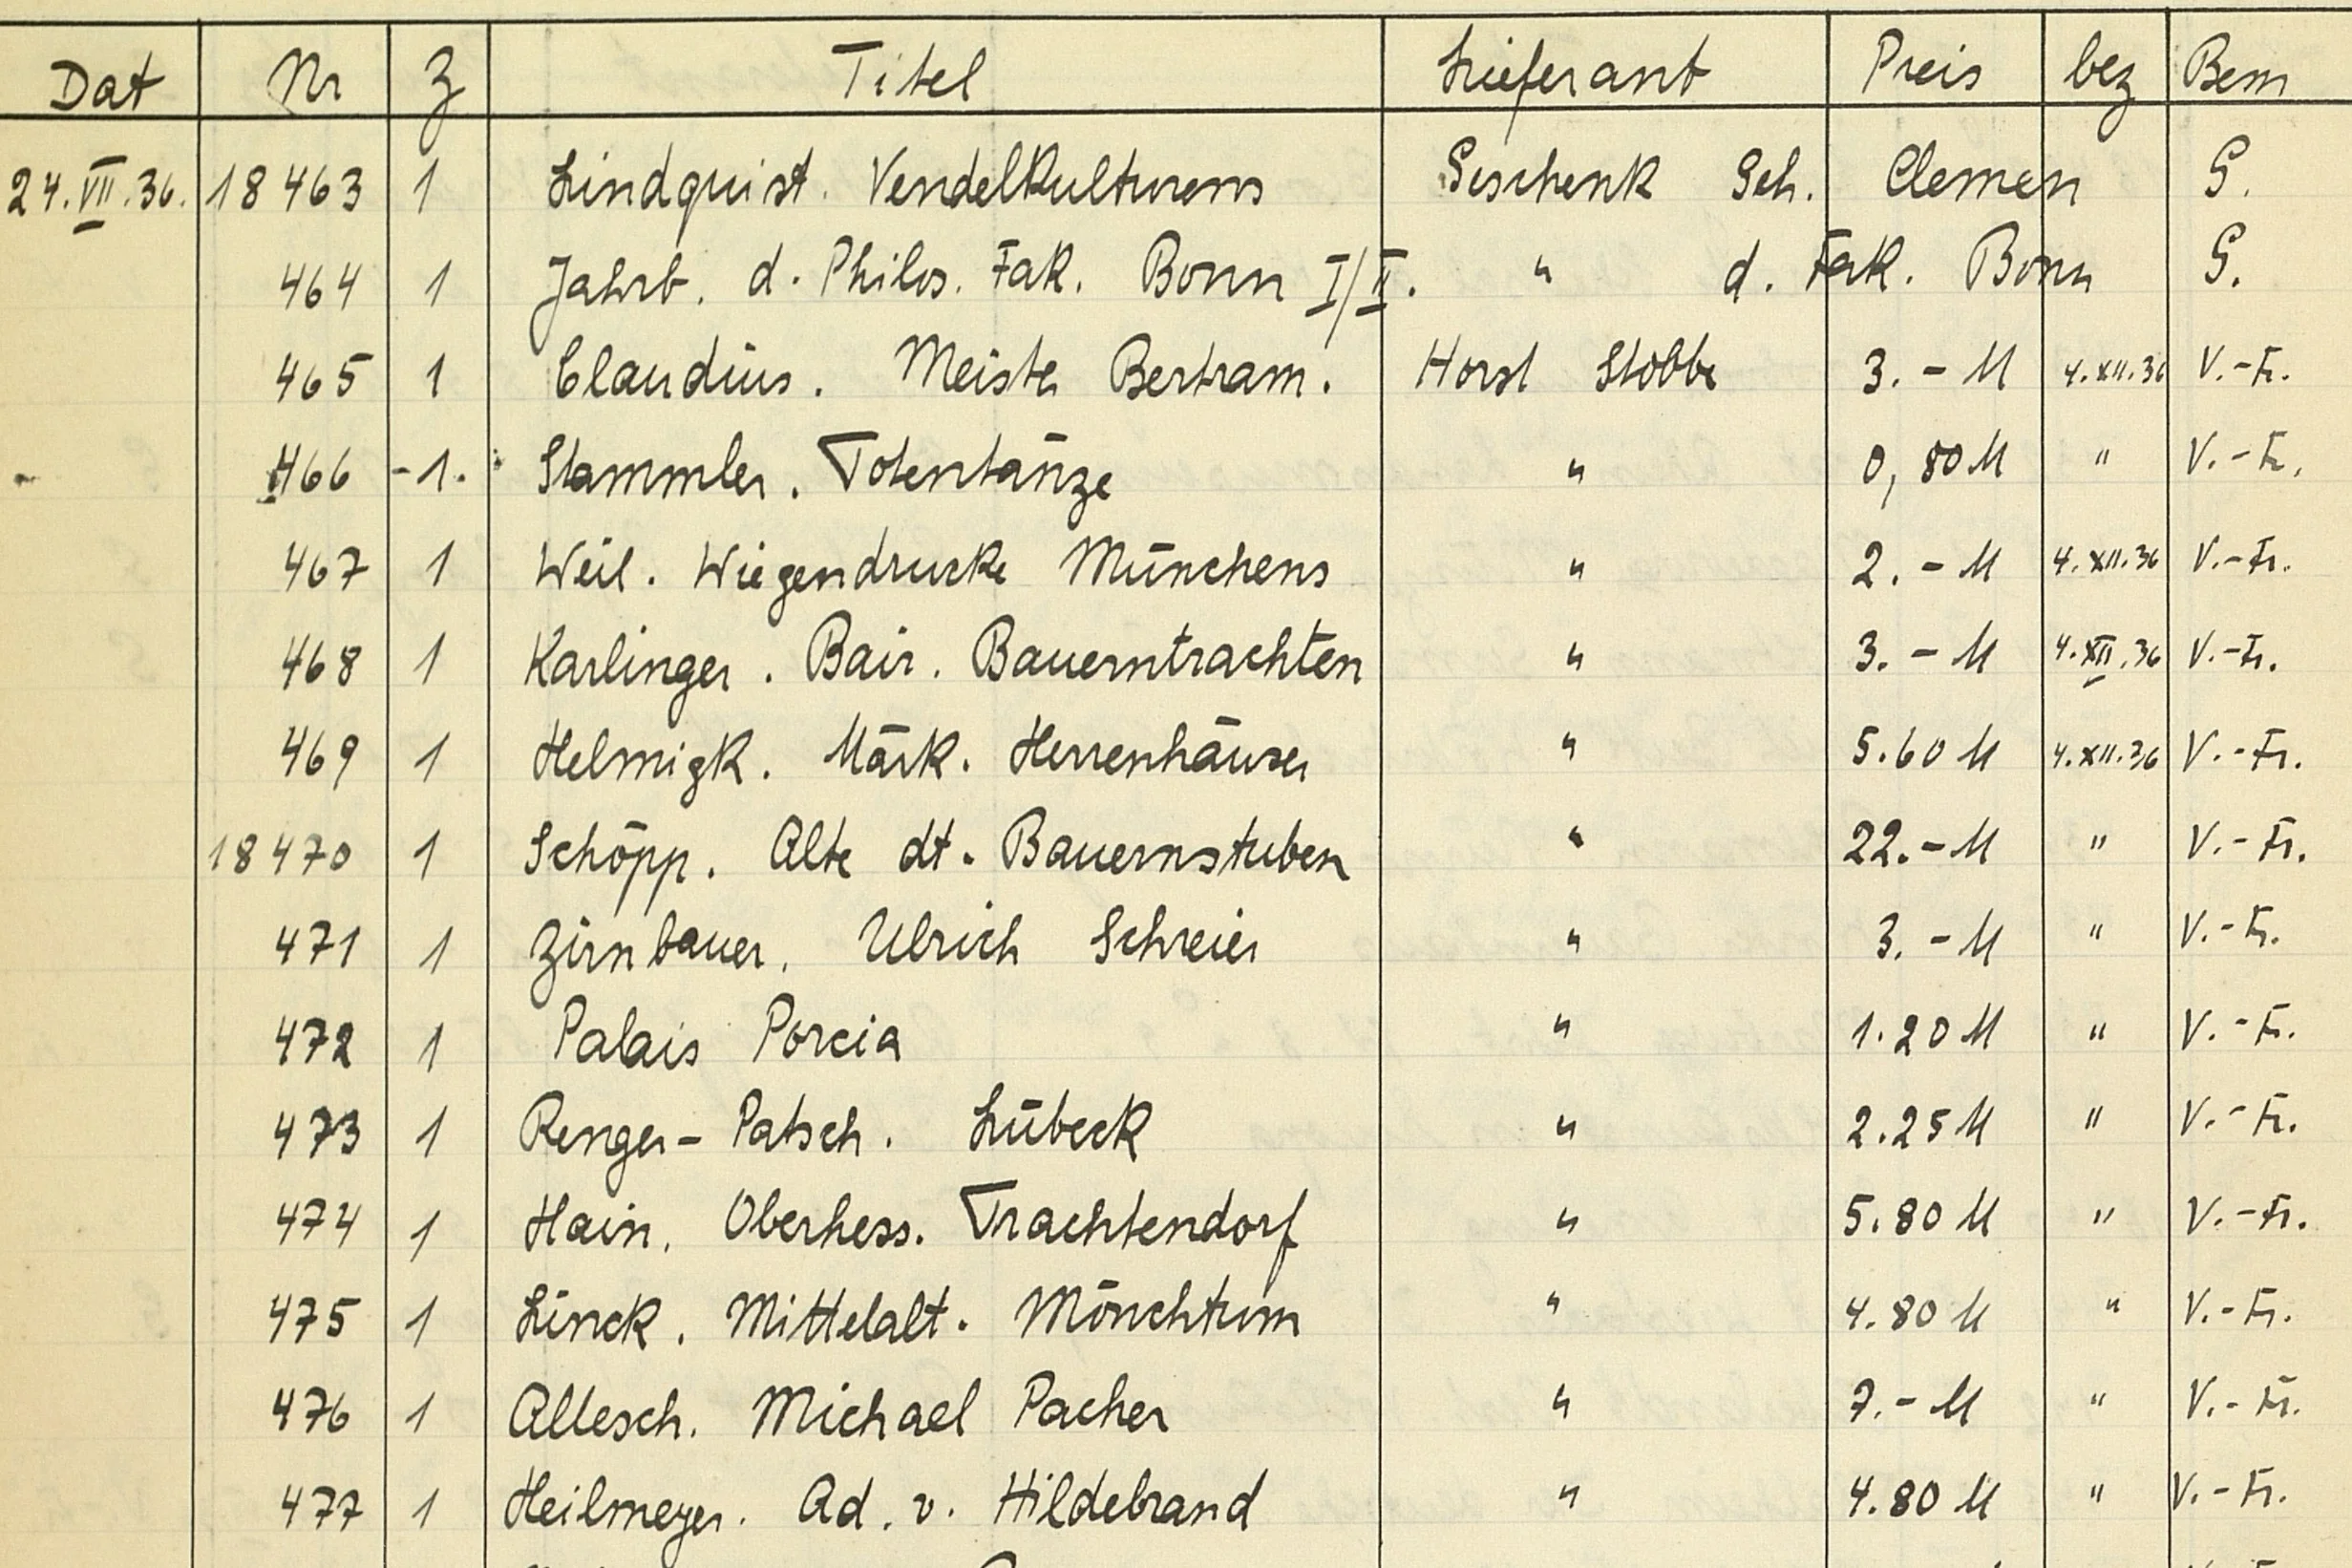 Dat Nr Z Titel Lieferant Preis bez Bem
24.VII.36. 18 463 1 Lindquist. Vendelkulturens Geschenk Geh. Clemen G.
464 1 Jahrb. d. Philos. Fak. Bonn I/II. " d. Fak. Bonn G.
465 1 Claudius. Meister Bertram. Horst Stobbe 3.- M 4.XII.36 V.-Fr.
466 -1. Stammler. Totentänze " 0,80 M " V.-Fr.
467 1 Weil. Wiegendrucke Münchens " 2.- M 4.XII.36 V.-Fr.
468 1 Karlinger. Bair. Bauerntrachten " 3.- M 4.XII.36 V.-Fr.
469 1 Helmigk. Märk. Herrenhäuser " 5.60 M 4.XII.36 V.-Fr.
18 470 1 Schöpp. Alte dt. Bauernstuben " 22.- M " V.-Fr.
471 1 Zirnbauer. Ulrich Schreier " 3.- M " V.-Fr.
472 1 Palais Porcia " 1.20 M " V.-Fr.
473 1 Renger-Patsch. Lübeck " 2.25 M " V.-Fr.
474 1 Hain. Oberhess. Trachtendorf " 5.80 M " V.-Fr.
475 1 Linck. Mittelalt. Mönchtum " 4.80 M " V.-Fr.
476 1 Allesch. Michael Pacher " 7.- M " V.-Fr.
477 1 Heilmeyer. Ad. v. Hildebrand " 4.80 M " V.-Fr.